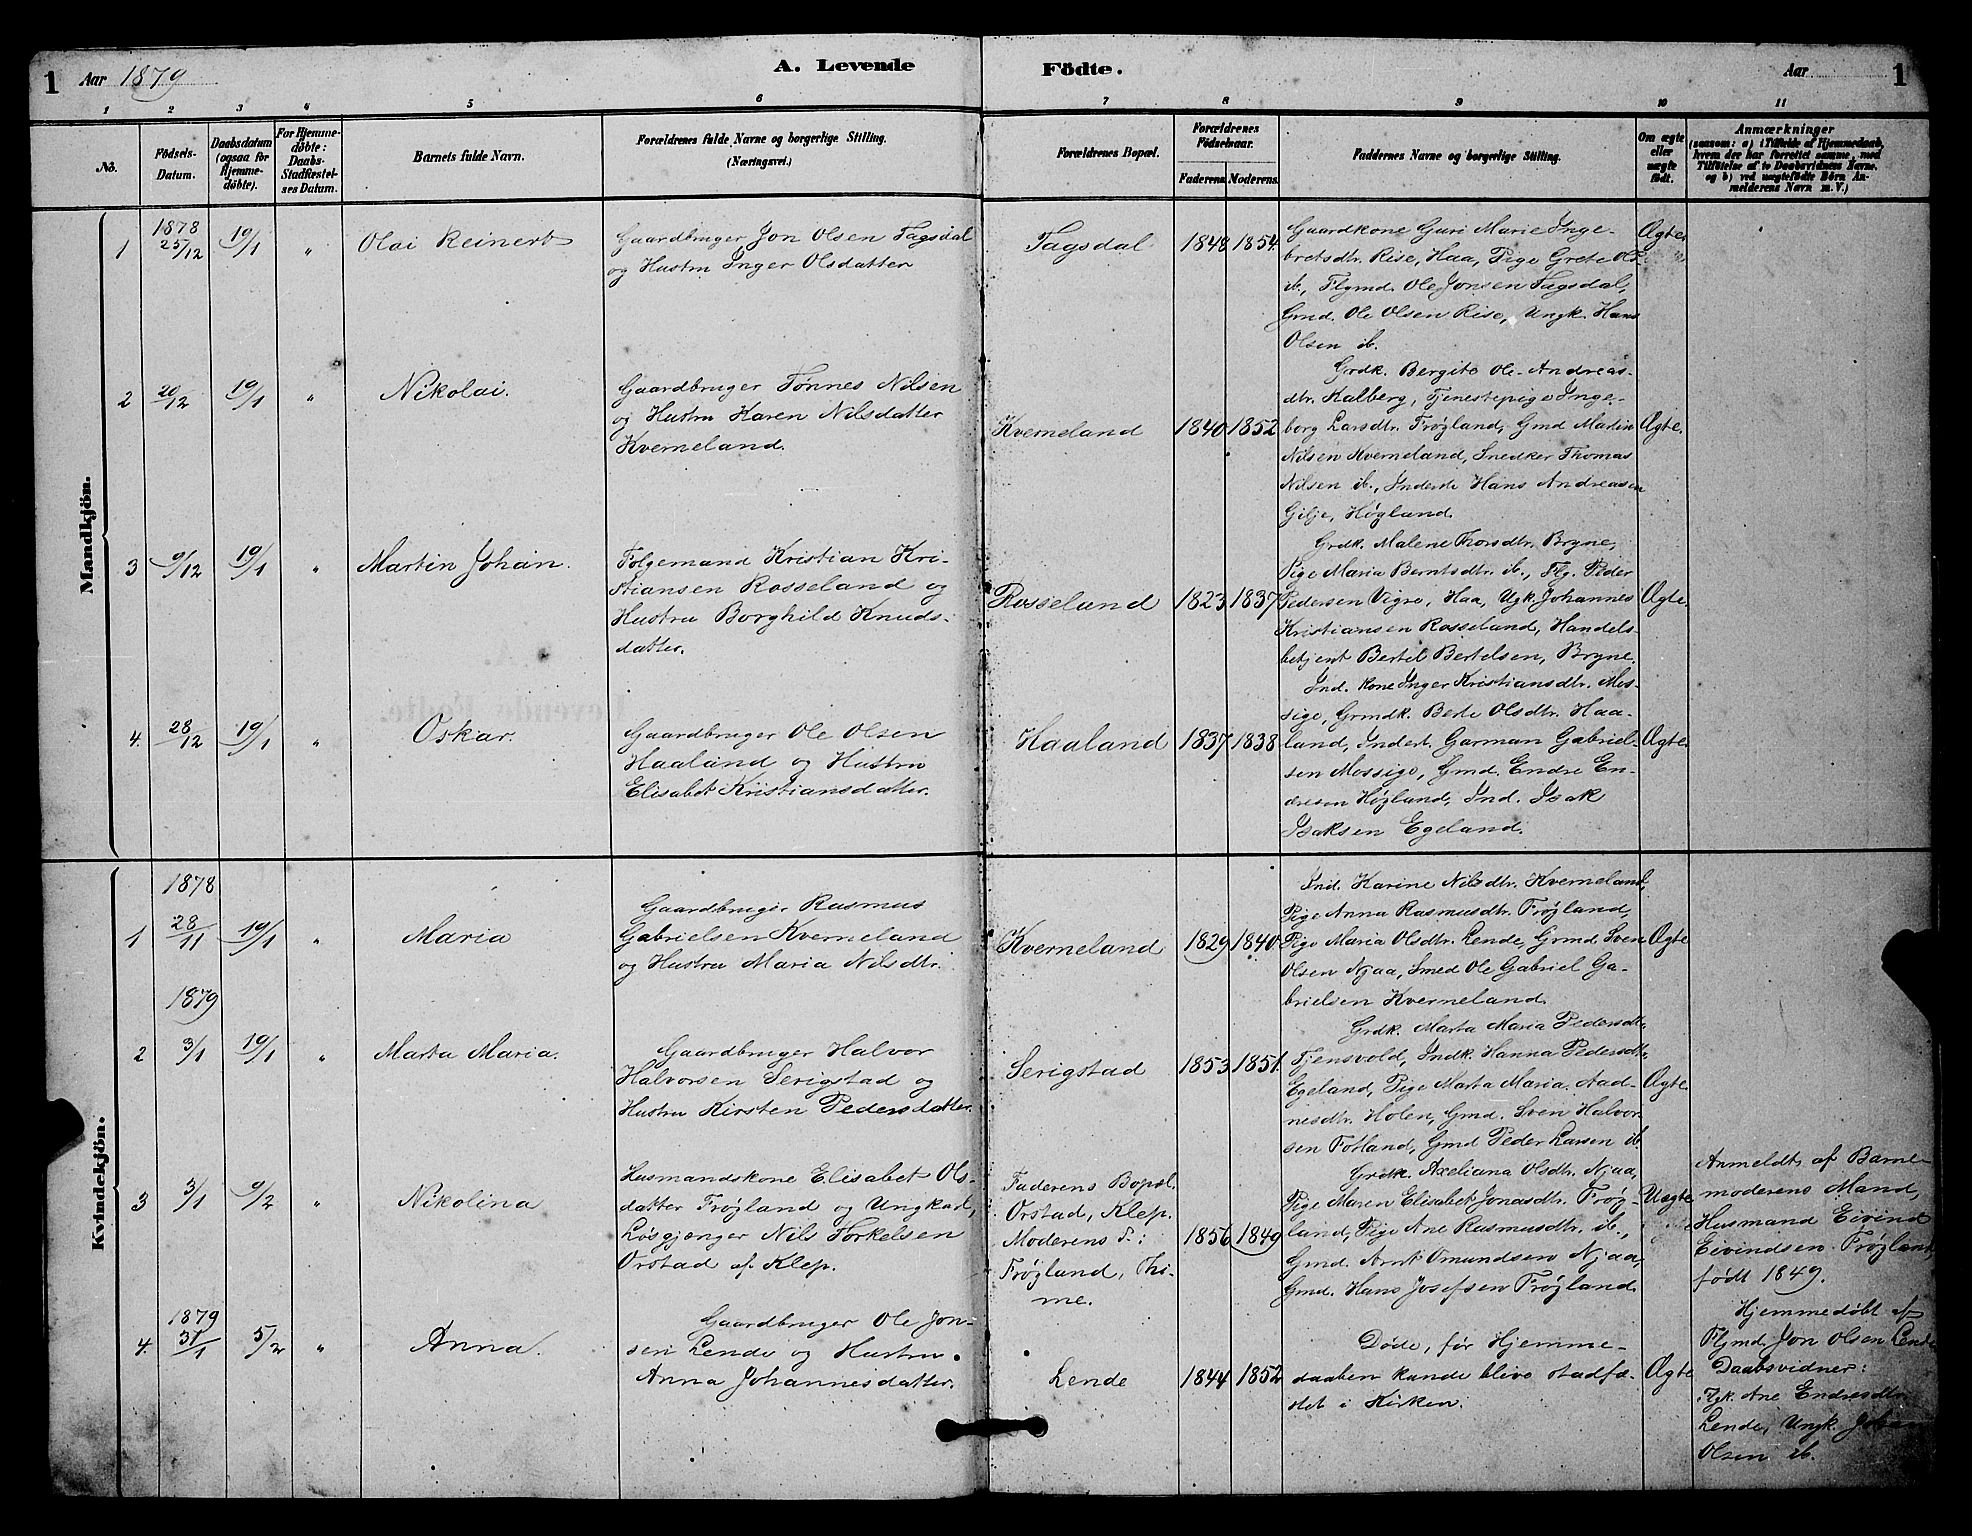 1 Aar 1879 A. Levende Födte. Aar 1
1 2 3 4 5 6 7 8 9 10 11
No.
Födsels-
Datum.
Daabsdatum
(ogsaa for
Hjemme-
döbte).
For Hjemme-
döbte:
Daabs-
Stadfæstel-
ses Datum.
Barnets fulde Navn.
Forældrenes fulde Navne og borgerlige Stilling.
(Næringsvei.)
Forældrenes Bopæl.
Forældrenes
Födselsaar.
Faderens. Moderens.
Faddernes Navne og borgerlige Stilling.
Om ægte
eller
uægte
födt.
Anmærkninger
(saasom: a) i Tilfælde af Hjemmedaab,
hvem der har forrettet samme, med
Tilföielse af to Daabsvidners Navne.
og b) ved uægtefödte Börn An-
melderens Navn m. V.)
Mandkjön.
1
1878
25/12
19/1
"
Olai Reinert
Gaardbruger Jon Olsen Tagsdal
og Hustru Inger Olsdatter
Tagsdal
1848 1854.
Gaardkone Guri Marie Inge-
bretsdtr. Rise, Haa, Pige Grete Ols
ib., Flgmd. Ole Jonsen Tagsdal,
Gmd. Ole Olsen Rise, Ungk. Hans
Olsen ib.
Ægte.
2
20/12
19/1
"
Nikolai.
Gaardbruger Tønnes Nilsen
og Hustru Karen Nilsdatter
Kverneland.
Kverneland
1840 1852
Grdk. Bergite Ole-Andreas-
dtr. Kalberg, Tjenestepige Inge-
borg Larsdtr. Frøyland, Gmd Martin
Nilsen Kverneland, Snedker Thomas
Nilsen ib., Inderste Hans Andreasen
Gilje, Høgland.
Ægte.
3
9/12
19/1
"
Martin Johan.
Følgemand Kristian Kri-
stiansen Rosseland og
Hustru Borghild Knuds-
datter.
Rosseland
1823 1837
Grdk. Malene Thorsdtr. Bryne,
Pige Maria Berntsdtr. ib., Flg. Peder
Pedersen Vigre, Haa, Ugk. Johannes
Kristiansen Rosseland, Handels-
betjent Bertel Bertelsen, Bryne.
Ægte.
4.
28/12
19/1
"
Oskar.
Gaardbruger Ole Olsen
Haaland og Hustru
Elisabet Kristiansdatter.
Haaland
1837 1838
Ind. kone Inger Kristiansdtr. Mos-
sige, Grmdk. Berte Olsdtr. Haa-
land, Inderst. Garman Gabriel-
sen Mossige, Gmd. Endre En-
dresen Høgland, Ind. Isak
Isaksen Egeland.
Ægte.
Kvindekjön.
1
1878
28/11
19/1
"
Maria
Gaardbruger Rasmus
Gabrielsen Kverneland
og Hustru Maria Nilsdtr.
Kverneland
1829 1840
Ind. Karine Nilsdtr. Kverneland,
Pige Anna Rasmusdtr. Frøyland,
Pige Maria Olsdtr. Lende, Grmd Sven
Olsen Njaa, Smed Ole Gabriel Ga-
brielsen Kverneland.
Ægte
2
1879
3/1
19/1
"
Marta Maria.
Gaardbruger Halvor
Halvorsen Serigstad og
Hustru Kirsten Pedersdatter.
Serigstad
1853 1851.
Grdk. Marta Maria Pedersdtr.
Tjensvold, Indk. Hanna Pedersdtr.
Egeland, Pige Marta Maria Aad-
nesdtr. Holen, Gmd. Sven Halvor-
sen Fotland, Gmd Peder Larsen ib.
Ægte.
3
3/1
9/2
"
Nikolina
Husmandskone Elisabet Ols-
datter Frøyland og Ungkarl,
Løsgjænger Nils Torkelsen
Orstad af Klep.
Faderens Bopæl.
Orstad, Klep.
Moderens B.:
Frøyland, Thi-
me.
1856 1849
Grdk. Axeliana Olsdtr. Njaa,
Pige Maren Elisabet Jonasdtr. Frøy-
land, Pige Ane Rasmusdtr. ib.,
Gmd. Arnt Omundsen Njaa,
Gmd. Hans Josefsen Frøyland.
Uægte
Anmeldt af Barne-
moderens Mand,
Husmand Eivind
Eivindsen Frøyland
født 1849.
4.
1879
31/1
5/2
"
Anna.
Gaardbruger Ole Jon-
sen Lende og Hustru
Anna Johannesdatter.
Lende
1844 1852
Døde, før Hjemme-
daaben kunde blive stadfæ-
stet i Kirken.
Ægte
Hjemmedøbt af
Flgmd. Jon Olsen Lende
Daabsvidner:
Flgk. Ane Endresdtr.
Lende, Ungk. Johan
Olsen ib.